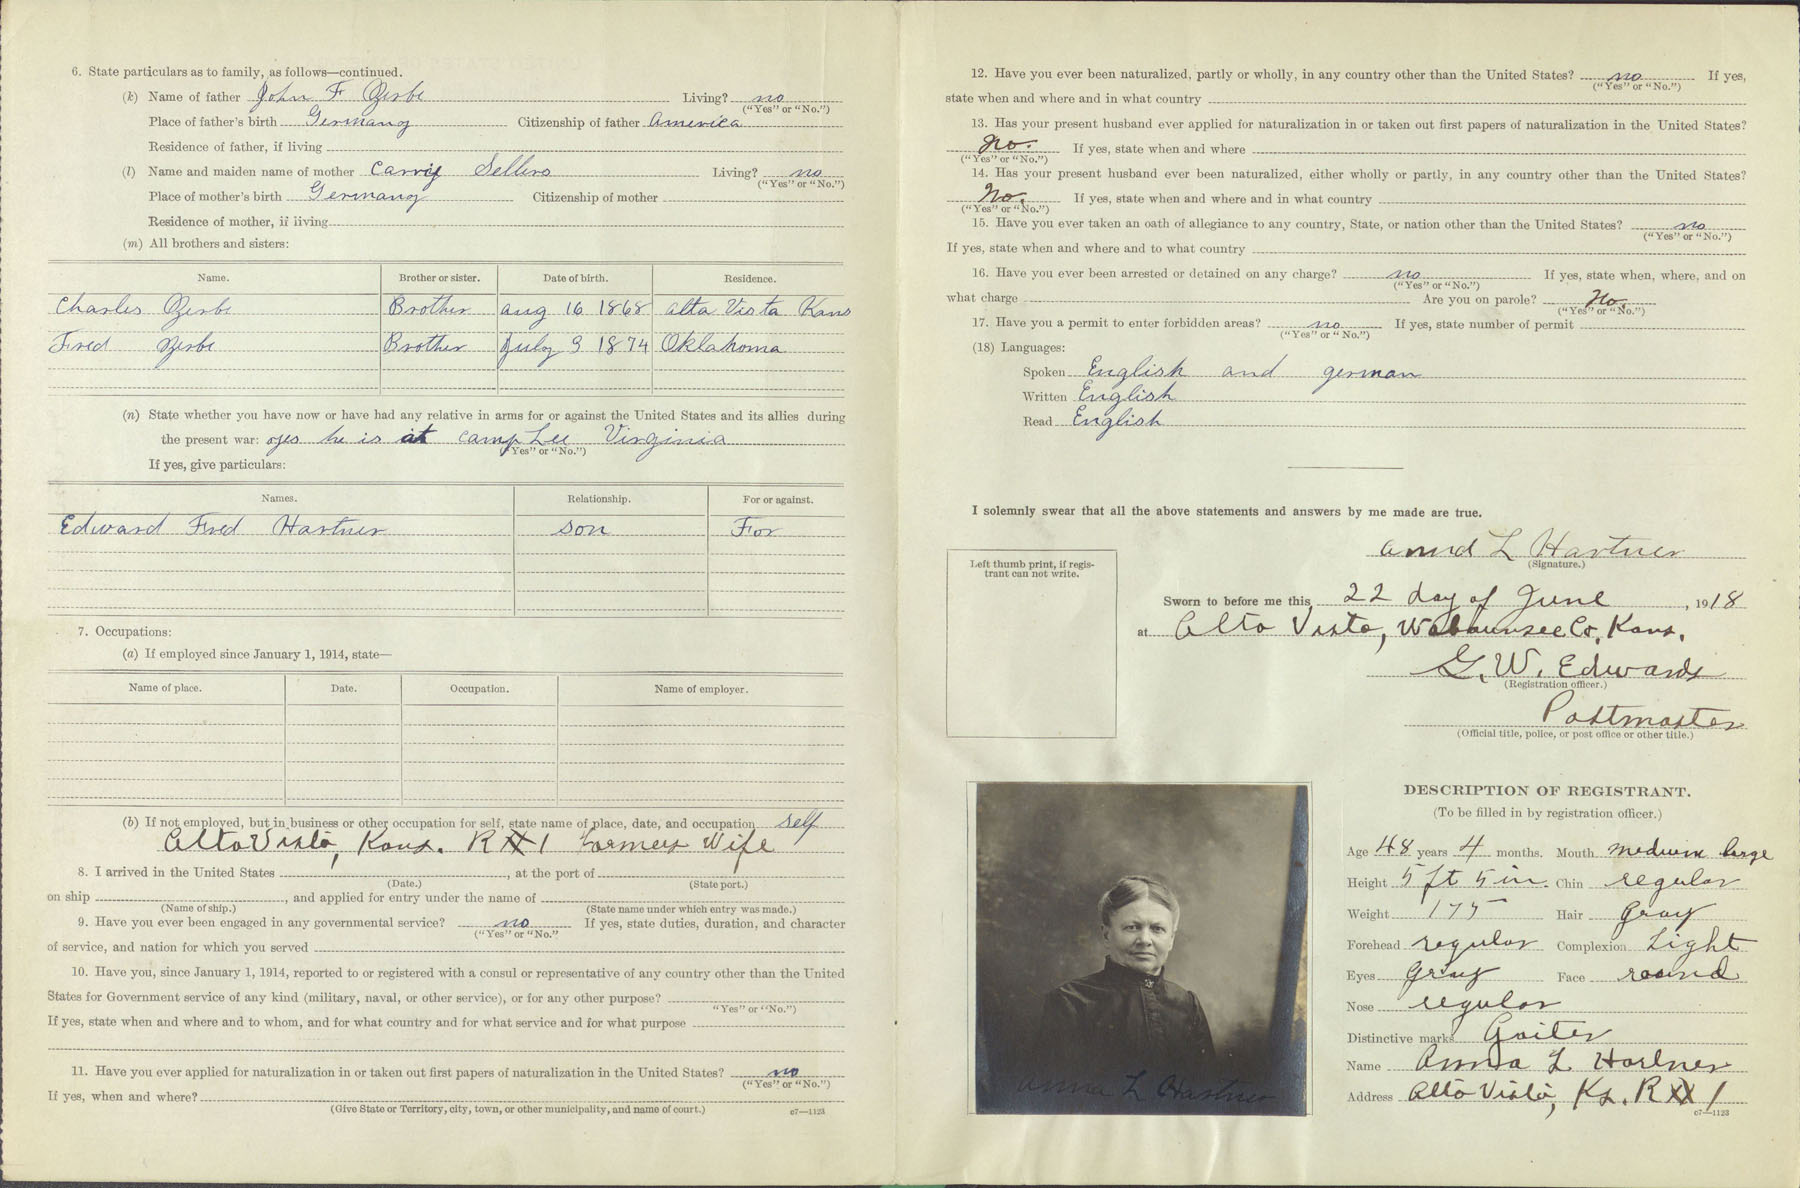 6. State particulars as to family, as follows—continued.
(k) Name of father John F Zerbe Living? no
("Yes" or "No.")
Place of father's birth Germany Citizenship of father America
Residence of father, if living
(l) Name and maiden name of mother Carrie Sellers Living? no
("Yes" or "No.")
Place of mother's birth Germany Citizenship of mother
Residence of mother, if living
(m) All brothers and sisters:
Name. Brother or sister. Date of birth. Residence.
Charles Zerbe Brother aug 16 1868 alta Vista Kans
Fred Zerbe Brother July 3 1874 Oklahoma
(n) State whether you have now or have had any relative in arms for or against the United States and its allies during
the present war: yes he is at camp Lee Virginia
("Yes" or "No.")
If yes, give particulars:
Names. Relationship. For or against.
Edward Fred Hartner son For
7. Occupations:
(a) If employed since January 1, 1914, state—
Name of place. Date. Occupation. Name of employer.
(b) If not employed, but in business or other occupation for self, state name of place, date, and occupation self
Alta Vista, Kans. R # 1 Farmers Wife
8. I arrived in the United States , at the port of
(Date.) (State port.)
on ship , and applied for entry under the name of
(Name of ship.) (State name under which entry was made.)
9. Have you ever been engaged in any governmental service? no If yes, state duties, duration, and character
("Yes" or "No."
of service, and nation for which you served
10. Have you, since January 1, 1914, reported to or registered with a consul or representative of any country other than the United
States for Government service of any kind (military, naval, or other service), or for any other purpose?
"Yes" or "No.")
If yes, state when and where and to whom, and for what country and for what service and for what purpose
11. Have you ever applied for naturalization in or taken out first papers of naturalization in the United States? no
("Yes" or "No.")
If yes, when and where?
(Give State or Territory, city, town, or other municipality, and name of court.) c7—1123
12. Have you ever been naturalized, partly or wholly, in any country other than the United States? no If yes,
("Yes" or "No.")
state when and where and in what country
13. Has your present husband ever applied for naturalization in or taken out first papers of naturalization in the United States?
No. If yes, state when and where
("Yes" or "No.")
14. Has your present husband ever been naturalized, either wholly or partly, in any country other than the United States?
No. If yes, state when and where and in what country
("Yes" or "No.")
15. Have you ever taken an oath of allegiance to any country, State, or nation other than the United States? no
("Yes" or "No.")
If yes, state when and where and to what country
16. Have you ever been arrested or detained on any charge? no If yes, state when, where, and on
("Yes" or "No.")
what charge Are you on parole? No.
("Yes" or "No.")
17. Have you a permit to enter forbidden areas? no If yes, state number of permit
("Yes" or "No.")
(18) Languages:
Spoken English and german
Written English
Read English
I solemnly swear that all the above statements and answers by me made are true.
L Hartner
(Signature.)
Left thumb print, if regis-
trant can not write.
Sworn to before me this 22 day of June , 1918
at Alta Vista, Wabaunsee Co. Kans.
G. W. Edwards
(Registration officer.)
Postmaster
(Official title, police, or post office or other title.)
anna L Hartner
DESCRIPTION OF REGISTRANT.
(To be filled in by registration officer.)
Age 48 years 4 months. Mouth medium large
Height 5 ft 5 in. Chin regular
Weight 175 Hair Gray
Forehead regular Complexion Light
Eyes Gray Face round
Nose regular
Distinctive marks Goiter
Name Anna L Hartner
Address Alta Vista, Ks. R # 1
c7—1123